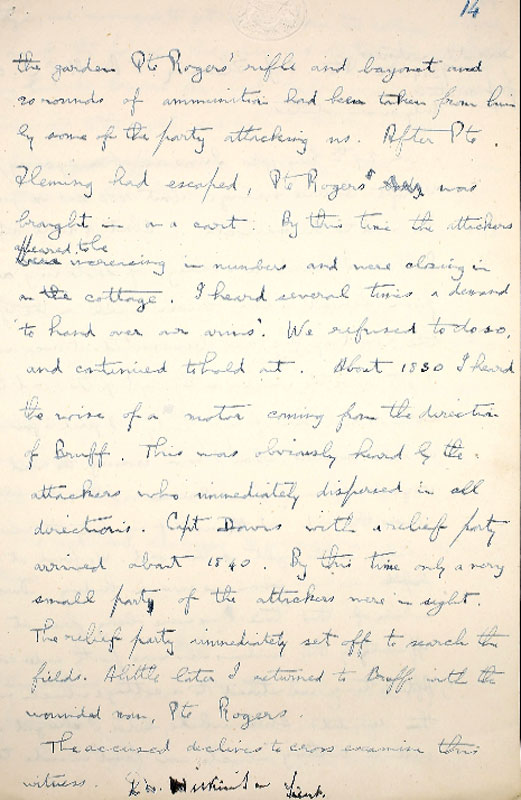 14
the garden Pte Rogers' rifle and bayonet and
20 rounds of ammunition had been taken from him
by some of the party attacking us. After Pte
Fleming had escaped, Pte Rogers was
brought in on a cart. By this time the attackers
appeared to be
were increasing in numbers and were closing in
on the cottage. I heard several times a demand
'to hand over our arms'. We refused to do so,
and continued to hold out. About 1830 I heard
the noise of a motor coming from the direction
of Bruff. This was obviously heard by the
attackers who immediately dispersed in all
directions. Capt Downs with a relief party
arrived about 1840. By this time only a very
small party of the attackers were in sight.
The relief party immediately set off to search the
fields. A little later I returned to Bruff with the
wounded man, Pte Rogers.
The accused declines to cross examine this
witness. Lieut.